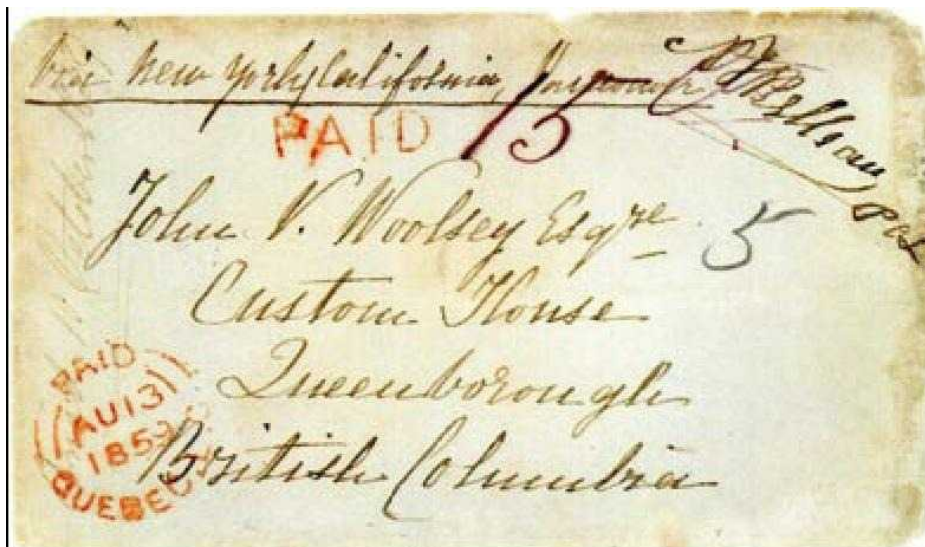 via New York & California,
PAID 15
John V. Woolsey Esqre
5
Custom House
Queenborough
British Columbia
PAID
AU 13
185
QUEBEC